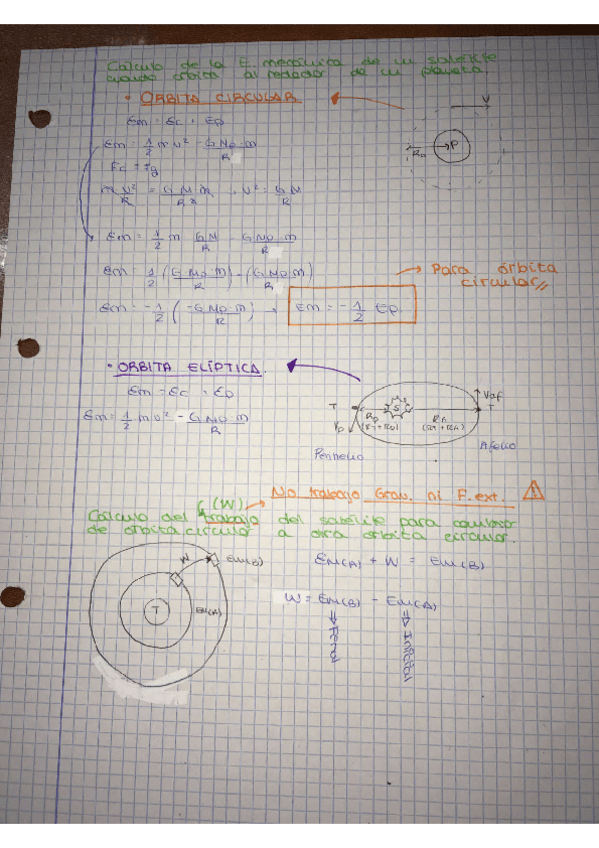 Cálculo de la E. mecánica de un satélite
cuando orbita alrededor de un planeta.
• ORBITA CIRCULAR
V
Em = Ec + Ep
Em = 1/2 m v² - G Mp·m/R
R₀ P
Fc = Fg
m v²/R = G M m/R² , v² = G M/R
Em = 1/2 m G M/R - G Mp·m/R
Em = 1/2 (G Mp·m/R) - (G Mp·m/R)
→ Para órbita
circular
Em = -1/2 (-G Mp·m/R) , Em = -1/2 Ep
• ORBITA ELÍPTICA.
Em = Ec + Ep
Em = 1/2 m v² - G Mp·m/R
T Rp S RA T Vaf
Vp
Perihelio Afelio
(W) → No trabajo Grav. ni F.ext.
Cálculo del trabajo del satélite para cambiar
de órbita circular a otra órbita circular.
W EM(B)
EM(A) + W = EM(B)
T EM(A)
W = EM(B) - EM(A)
⇒ Final
⇒ Inicial